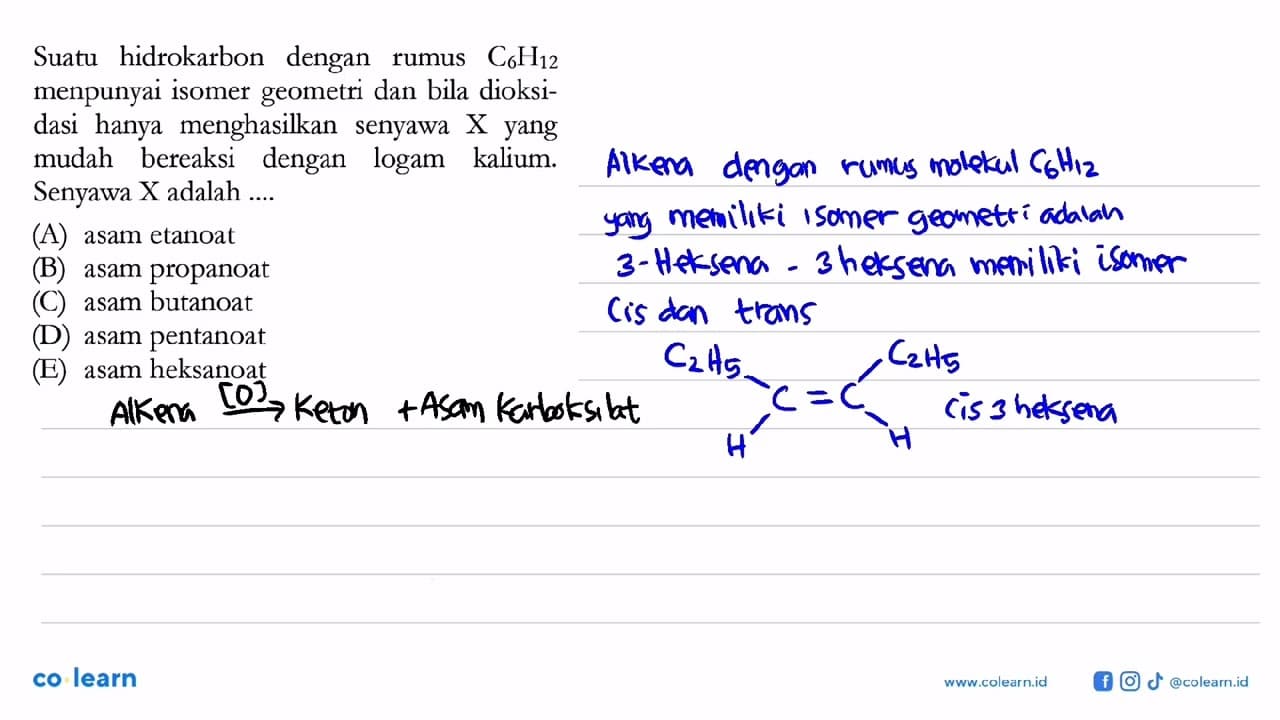 Suatu hidrokarbon dengan rumus C₆H₁₂
menpunyai isomer geometri dan bila dioksi-
dasi hanya menghasilkan senyawa X yang
mudah bereaksi dengan logam kalium.
Senyawa X adalah ....
(A) asam etanoat
(B) asam propanoat
(C) asam butanoat
(D) asam pentanoat
(E) asam heksanoat
Alkena [O]→ Keton + Asam Karboksilat
Alkena dengan rumus molekul C₆H₁₂
yang memiliki isomer geometri adalah
3-Heksena - 3 heksena memiliki isomer
Cis dan trans
C₂H₅ C₂H₅
C = C cis 3 heksena
H H
co learn
www.colearn.id @colearn.id